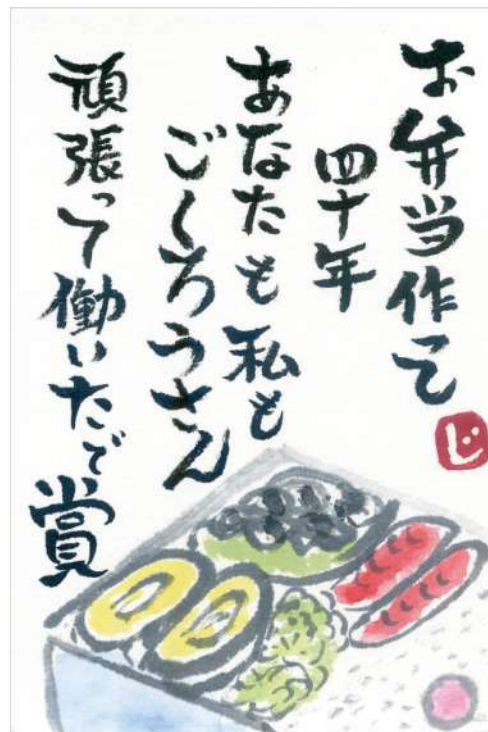 お弁当作って
四十年
あなたも私も
ごくろうさん
頑張って働いたで賞
じ